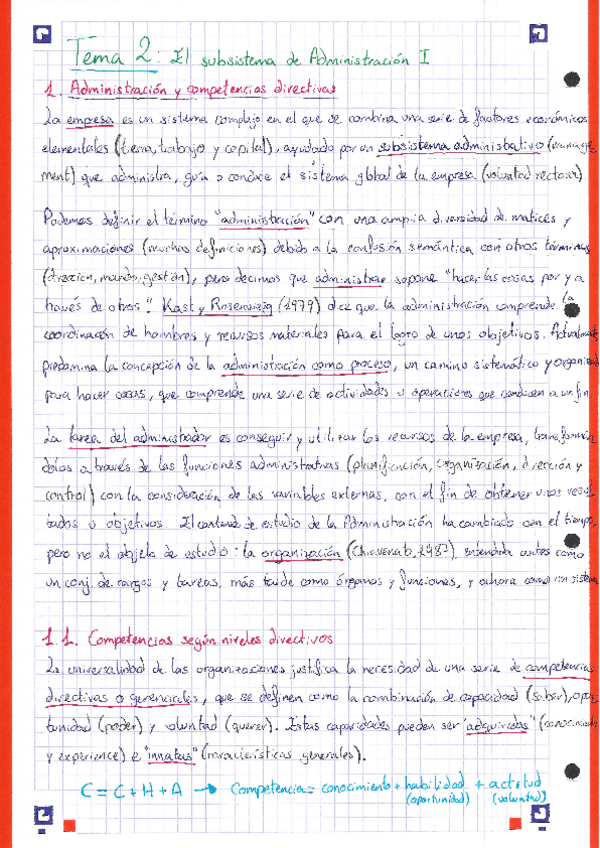 Tema 2: El subsistema de Administración I
1. Administración y competencias directivas
La empresa es un sistema complejo en el que se combina una serie de factores económicos
elementales (tierra, trabajo y capital), ayudado por un subsistema administrativo (manage
ment) que administra, guía o conduce el sistema global de la empresa (voluntad rectora)
Podemos definir el término "administración" con una amplia diversidad de matices y
aproximaciones (muchas definiciones) debido a la confusión semántica con otros términos
(dirección, mando, gestión), pero decimos que administrar supone "hacer las cosas por y a
través de otros". Kast y Rosenzweig (1979) dice que la administración comprende la
coordinación de hombres y recursos materiales para el logro de unos objetivos. Actualmente
predomina la concepción de la administración como proceso, un camino sistemático y organizado
para hacer cosas, que comprende una serie de actividades u operaciones que conducen a un fin
La tarea del administrador es conseguir y utilizar los recursos de la empresa, transformán
dolos a través de las funciones administrativas (planificación, organización, dirección y
control) con la consideración de las variables externas, con el fin de obtener unos resul
tados u objetivos. El contenido de estudio de la Administración ha cambiado con el tiempo,
pero no el objeto de estudio: la organización (Chiavenato, 1987), entendida antes como
un conj. de cargos y tareas, más tarde como órganos y funciones, y ahora como un sistema
1.1. Competencias según niveles directivos
La universalidad de las organizaciones justifica la necesidad de una serie de competencias
directivas o gerenciales, que se definen como la combinación de capacidad (saber), opor
tunidad (poder) y voluntad (querer). Estas capacidades pueden ser "adquiridas" (conocimiento
y experience) e "innatas" (características generales).
C = C + H + A → Competencia = conocimiento + habilidad + actitud
(oportunidad) (voluntad)